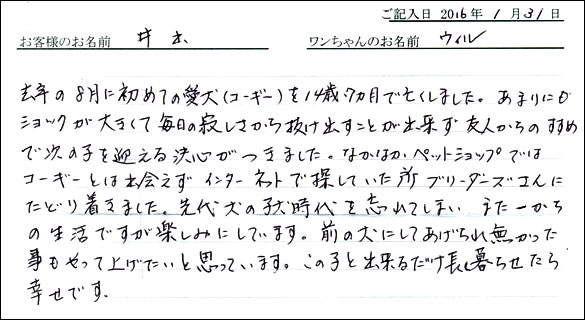 ご記入日 2016年 1月31日
お客様のお名前 井上 ワンちゃんのお名前 ウィル
去年の8月に初めての愛犬(コーギー)を14歳7カ月で亡くしました。あまりにも
ショックが大きくて毎日の寂しさから抜け出すことが出来ず友人からのすすめ
で次の子を迎える決心がつきました。なかなか、ペットショップでは
コーギーとは出会えずインターネットで探していた所ブリーダーズさんに
たどり着きました。先代犬の子犬時代を忘れてしまいまた一から
の生活ですが楽しみにしています。前の犬にしてあげられ無かった
事もやって上げたいと思っています。この子と出来るだけ長く暮らせたら
幸せです。